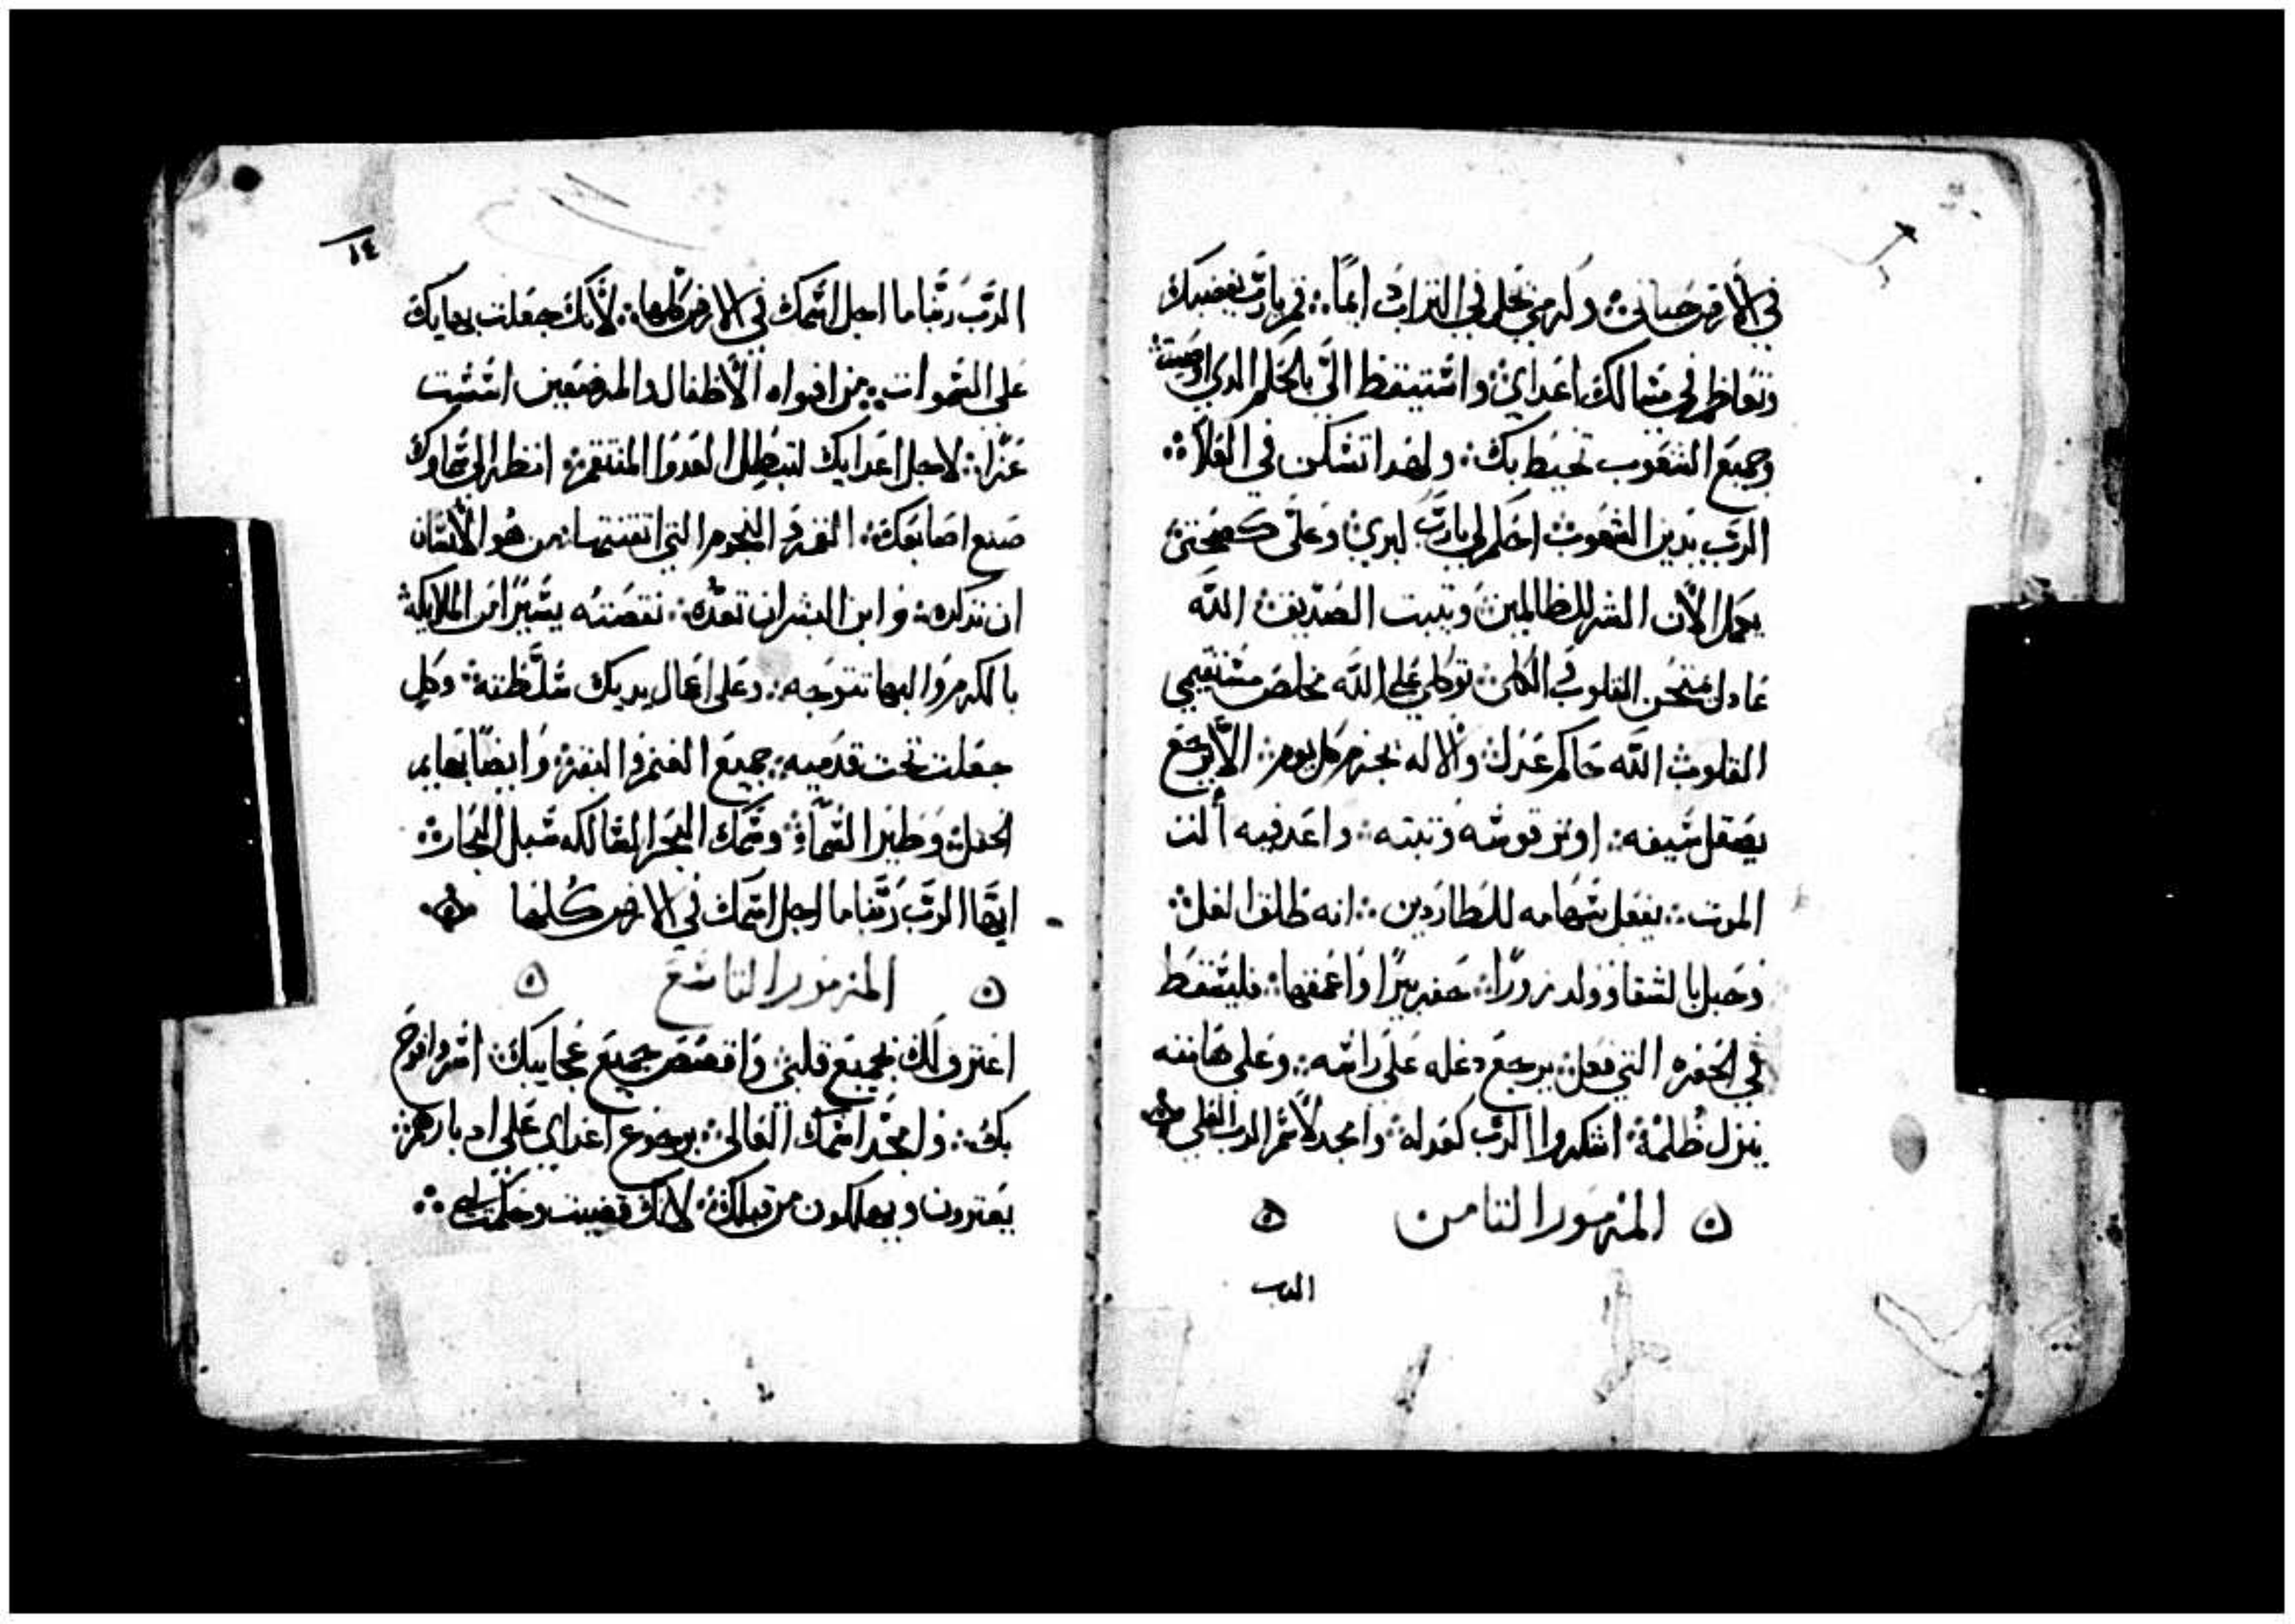 في الأرض حياتي ∴ وكرمي تحل في التراب دايمًا ∴ قم يارب بغضبك
وتعاظم في مسالك اعداي ∴ واستيقظ الي بالحكم الدي اوصيت ∴
وجميع الشعوب تحيط بك ∴ ولهدا تسكن في العلا ∴
الرب يدين الشعوب احكم لي يارب لبري وعلى
يكمل الان الشر للظالمين وتثبت الصديق ∴ الله
عادل ممتحن القلوب والكلى ∴ توكلي على الله مخلص مستقيمي
القلوب الله حاكم عدل والاله كل يوم ∴ الا يرجع
يصقل سيفه ∴ اوتر قوسه وثبته ∴ واعد فيه ألت
الموت ∴ يفعل سهامه للطاردين ∴ انه طلق الغل ∴
وحبل بالشقا وولد زورًا ∴ حفر بيرًا واعمقها ∴ فليسقط
في الحفره التي فعل ∴ يرجع دغله على راسه ∴ وعلى هامته
ينزل ظلمه ∴ اشكروا الرب كعدله ∴ وامجد لاسم الرب العلي
المزمور الثامن
الرب
١٤
الرَّب ربَّنا ما اجل اسمك في الارض كلها ∴ لأنك جعلت بهايك
على السموات ∴ من افواه الأطفال والمرضعين اسست
عزًا ∴ لاجل اعدايك لتبطل العدو المنتقم ∴ انظر الى سماوك
صنع اصابعك ∴ القمر و النجوم التي اتقنتها ∴ من هو الأنسان
ان تذكره ∴ و ابن البشر ان تعده ∴ نقصته يسيرًا من الملايكه ∴
بالكرم والبها تتوجه ∴ وعلى اعمال يديك سلَّطته ∴ وكل
جعلت تحت قدميه ∴ جميع الغنم والبقر ∴ وايضًا بهايم
الحقل ∴ وطير السماء ∴ وسمك البحر السالكه سبل البحار ∴
ايها الرب ربنا ما اجل اسمك في الارض كلها
المزمور التاسع
اعترف لك بجميع قلبي واقصص جميع عجايبك ∴ اسر وافرح
بك ∴ و امجد اسمك العالي ∴ برجوع اعداي على ادبارهم ∴
يعترون ويهلكون من قبلك ∴ لانك قضيت وحكمت لي ∴